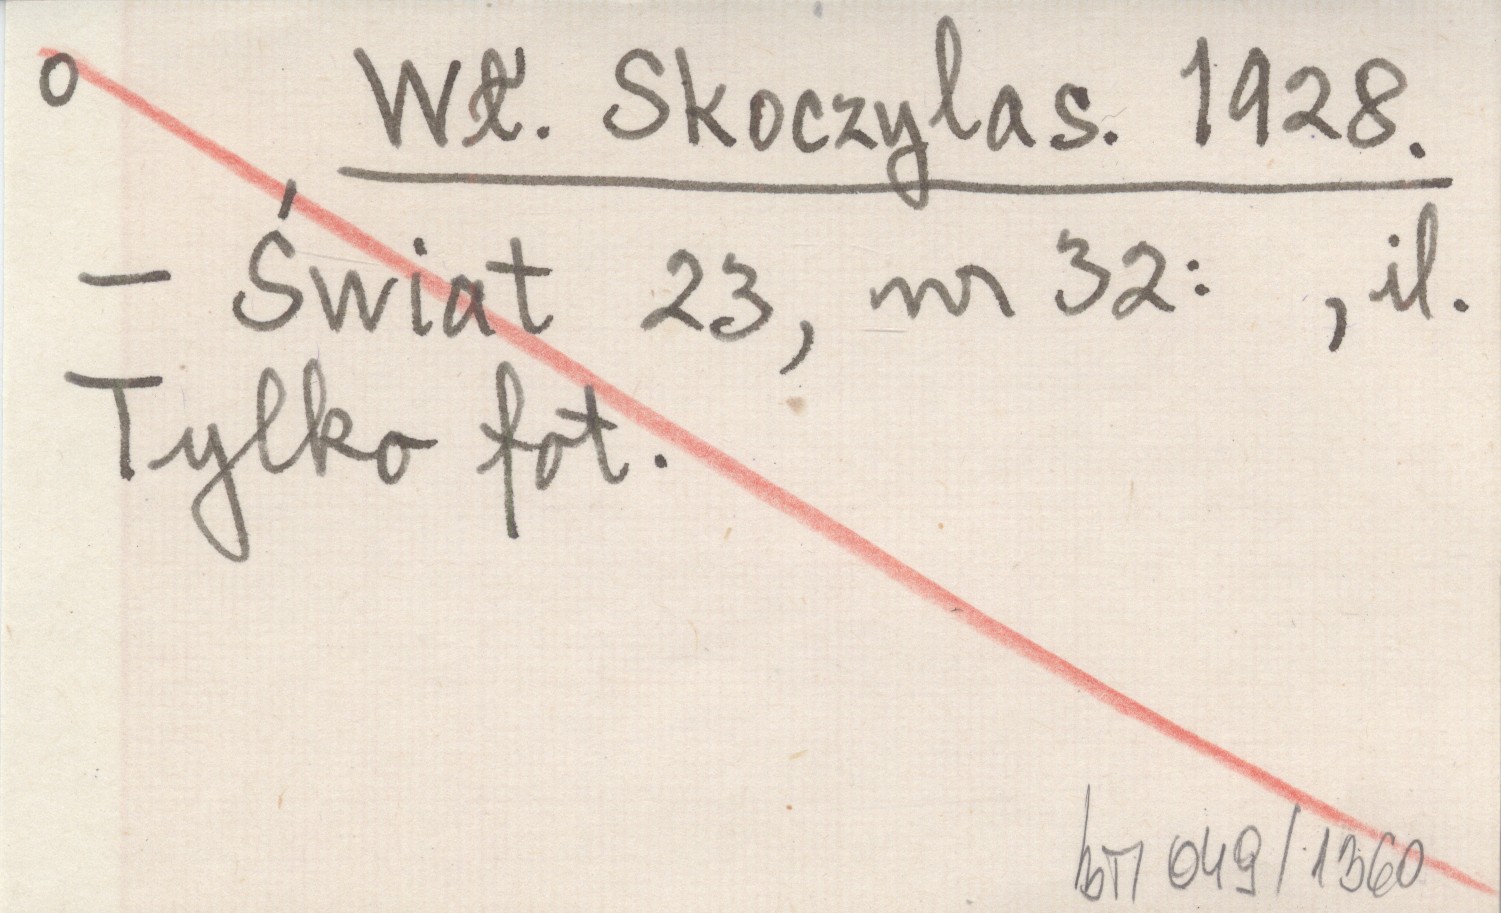 o Wł. Skoczylas. 1928.
– Świat 23, nr 32: , il.
Tylko fot.
049/1360